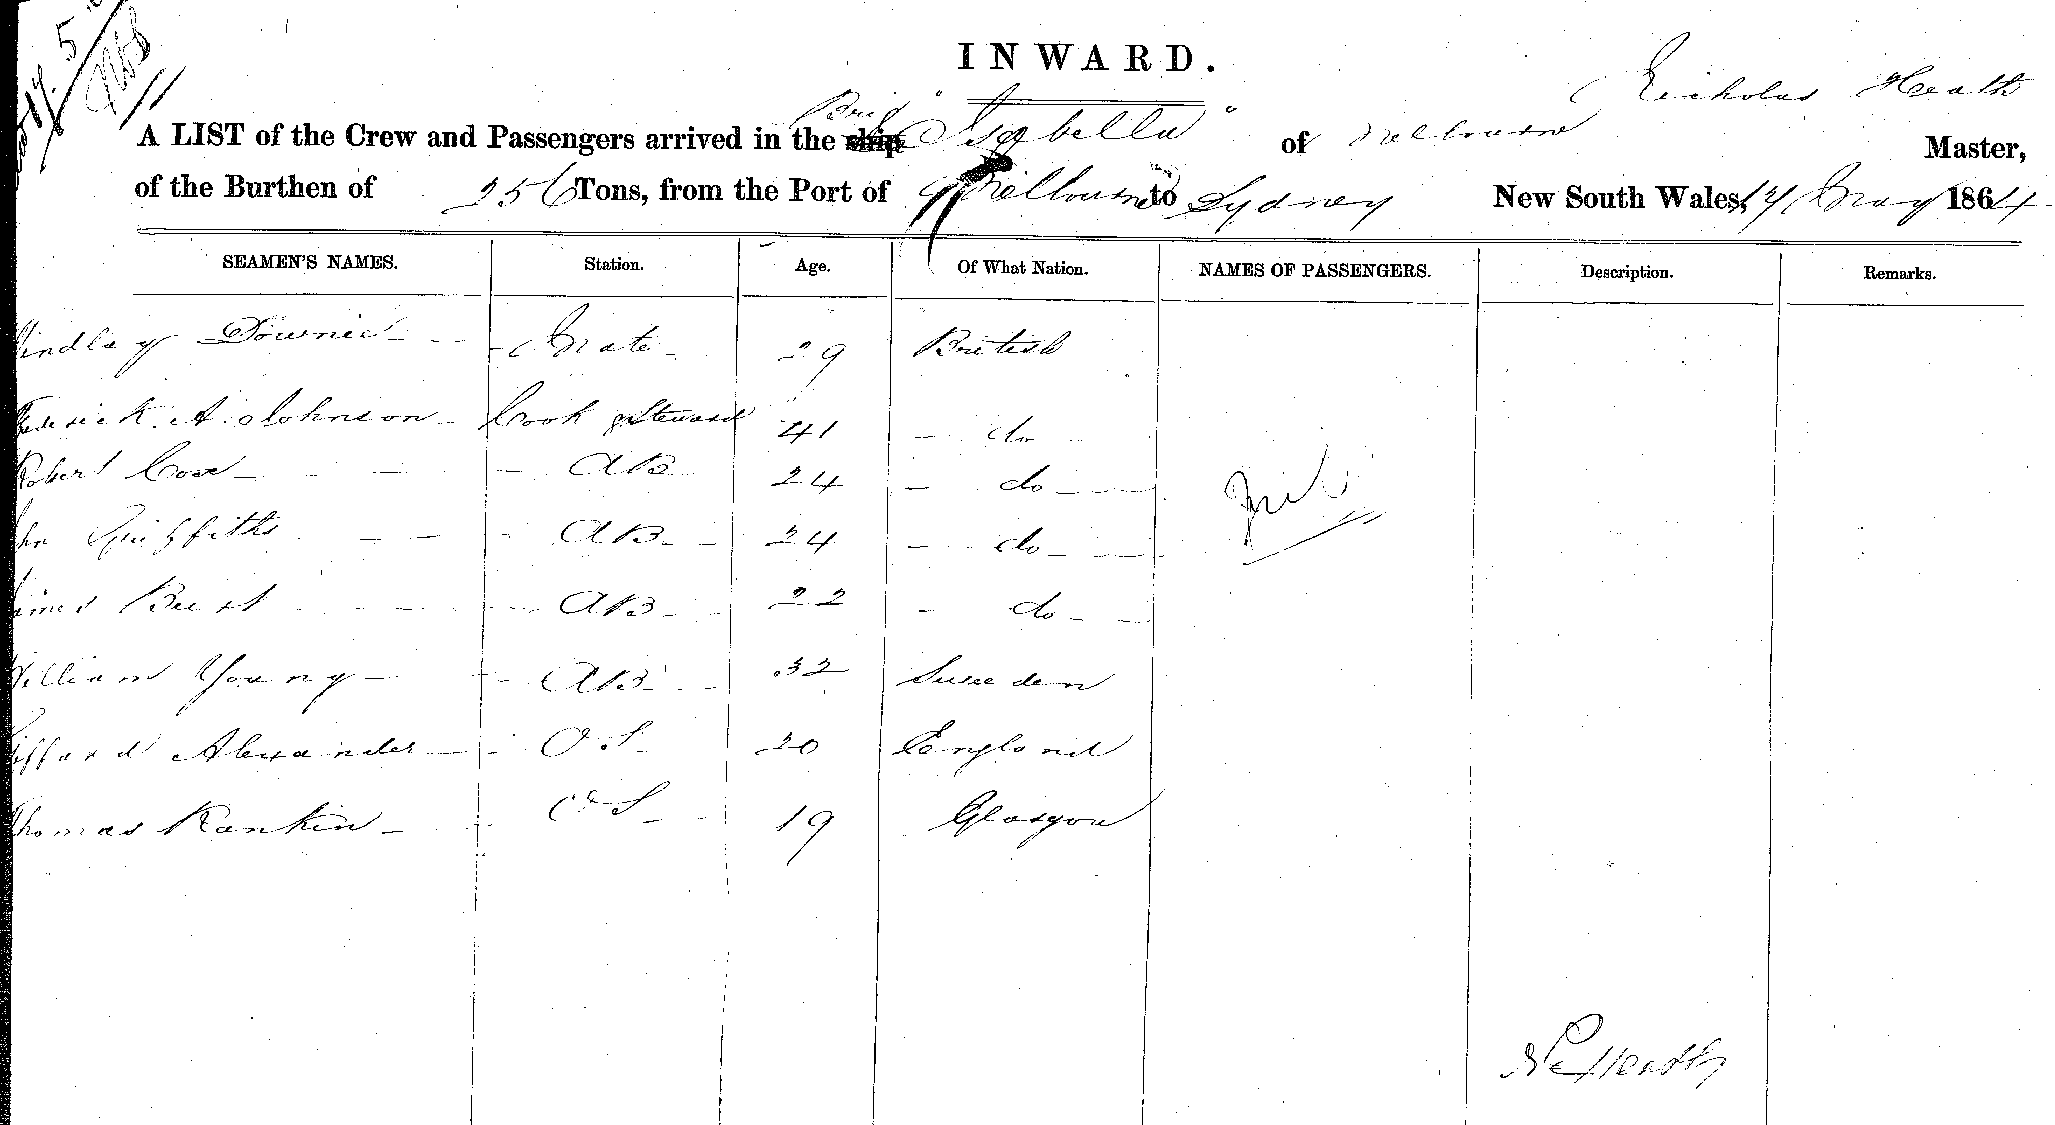 5
INWARD.
Nicholas Heath
Brig
A LIST of the Crew and Passengers arrived in the ship "Isabella" of Melbourne Master,
of the Burthen of 256 Tons, from the Port of Melbourne to Sydney New South Wales, 17 May 1864
SEAMEN'S NAMES. Station. Age. Of What Nation. NAMES OF PASSENGERS. Description. Remarks.
Findlay Downie Mate 29 British
Frederick A. Johnson Cook & Steward 41 do
Robert Coxe AB 24 do
John Griffiths AB 24 do Nil
James Bust AB 22 do
William Young AB 32 Sweden
Giffard Alexander O.S. 20 England
Thomas Rankin O.S 19 Glasgow
N Heath